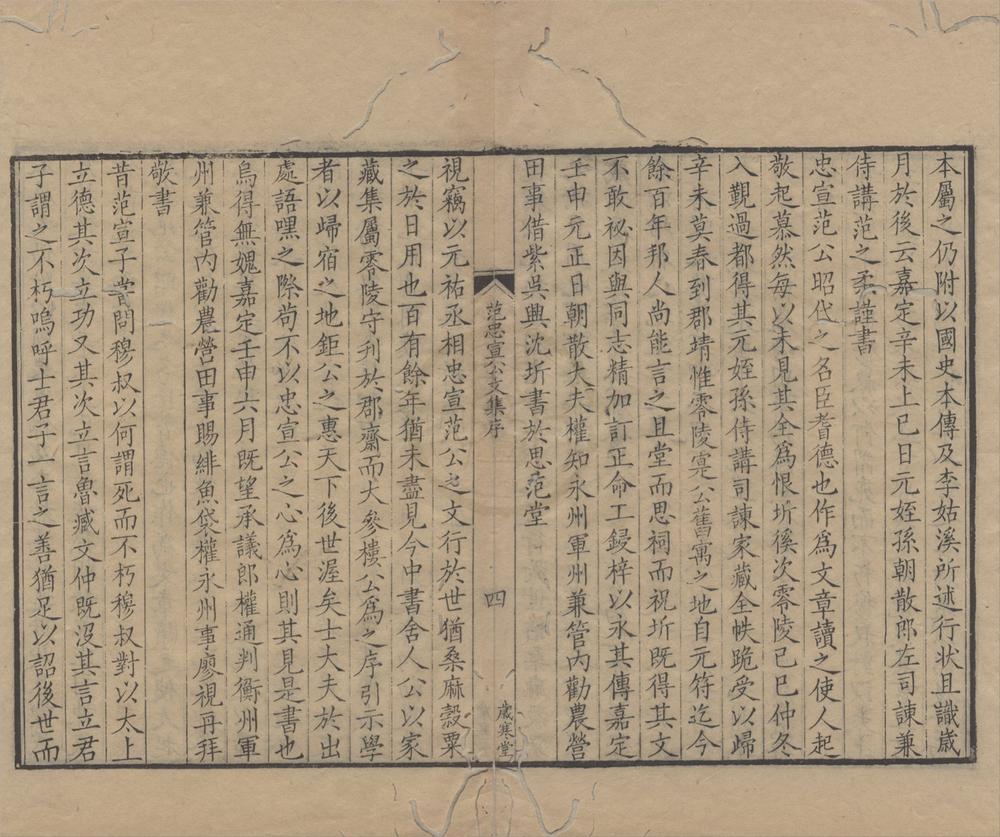 本屬之仍附以國史本傳及李姑溪所述行狀且識歲
月於後云嘉定辛未上巳日元姪孫朝散郎左司諫兼
侍講范之柔謹書
忠宣范公昭代之名臣耆德也作為文章讀之使人起
敬起慕然每以未見其全為恨圻後次零陵己巳仲冬
入覲過都得其元姪孫侍講司諫家藏全帙跪受以歸
辛未莫春到郡靖惟零陵寔公舊寓之地自元符迄今
餘百年邦人尚能言之且堂而思祠而祝圻既得其文
不敢祕因與同志精加訂正命工鋟梓以永其傳嘉定
壬申元正日朝散大夫權知永州軍州兼管內勸農營
田事借紫吳興沈圻書於思范堂
范忠宣公文集序
四
歲寒堂
視竊以元祐丞相忠宣范公之文行於世猶桑麻穀粟
之於日用也百有餘年猶未盡見今中書舍人公以家
藏集屬零陵守刊於郡齋而大參樓公為之序引示學
者以歸宿之地鉅公之惠天下後世渥矣士大夫於出
處語嘿之際苟不以忠宣公之心為心則其見是書也
烏得無媿嘉定壬申六月既望承議郎權通判衡州軍
州兼管內勸農營田事賜緋魚袋權永州事廖視再拜
敬書
昔范宣子嘗問穆叔以何謂死而不朽穆叔對以太上
立德其次立功又其次立言魯臧文仲既沒其言立君
子謂之不朽嗚呼士君子一言之善猶足以詔後世而